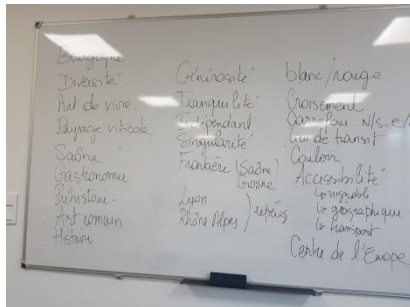 Bourgogne
Diversité
Art de vivre
Paysage viticole
Saône
Gastronomie
Préhistoire
Art romain
Histoire
Générosité
Tranquilité
Indépendant
Singularité
Frontière (Saône)
Grosne
Lyon
Rhône Alpes ) repères
blanc/rouge
Croisement
Carrefour : N/S. e/
Lieu de transit
Couloir
Accessibilité
↳ vignoble
↳ géographique
↳ transport
Centre de l'Europe